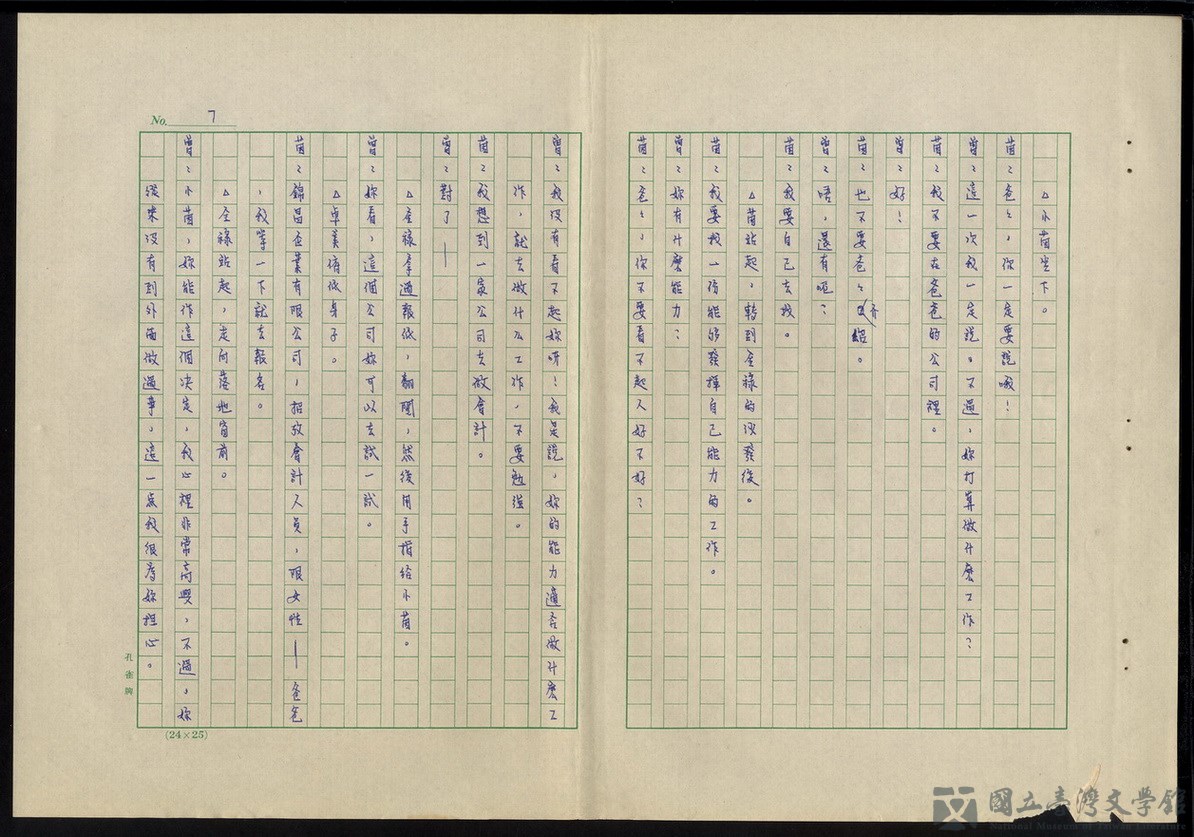 No. 7
△小茵坐下。
茵：爸爸，你一定要說哦！
曾：這一次我一定說。不過，妳打算做什麼工作？
茵：我不要在爸爸的公司裡。
曾：好！
茵：也不要爸爸介紹。
曾：唔，還有呢？
茵：我要自己去找。
△茵站起，轉到金祿的沙發後。
：我要找一份能够發揮自己能力的工作。
曾：妳有什麼能力？
茵：爸爸，你不要看不起人好不好？
曾：我沒有看不起妳呀！我是說，妳的能力適合做什麽工
作，就去做什么工作，不要勉強。
茵：我想到一家公司去做會計。
曾：對了——
△金祿拿過報紙，翻開，然後用手指給小茵。
曾：妳看，這個公司妳可以去試一試。
△卓美俯低身子。
茵：錦昌企業有限公司，招攷會計人員，限女性——爸爸
，我等一下就去報名。
△金祿站起，走向落地窗前。
曾：小茵，妳能作這個决定，我心裡非常高興，不過，妳
從來沒有到外面做過事，這一點我很為妳担心。
孔雀牌
(24×25)
國立臺灣文學館
National Museum of Taiwan Literature